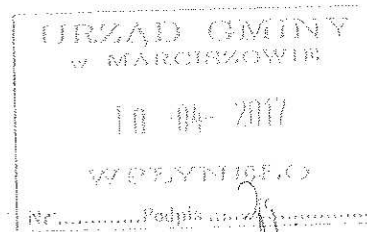 URZĄD GMINY
w MARCISZOWIE
10 -04- 2017
WPŁYNĘŁO
Nr............Podpis............